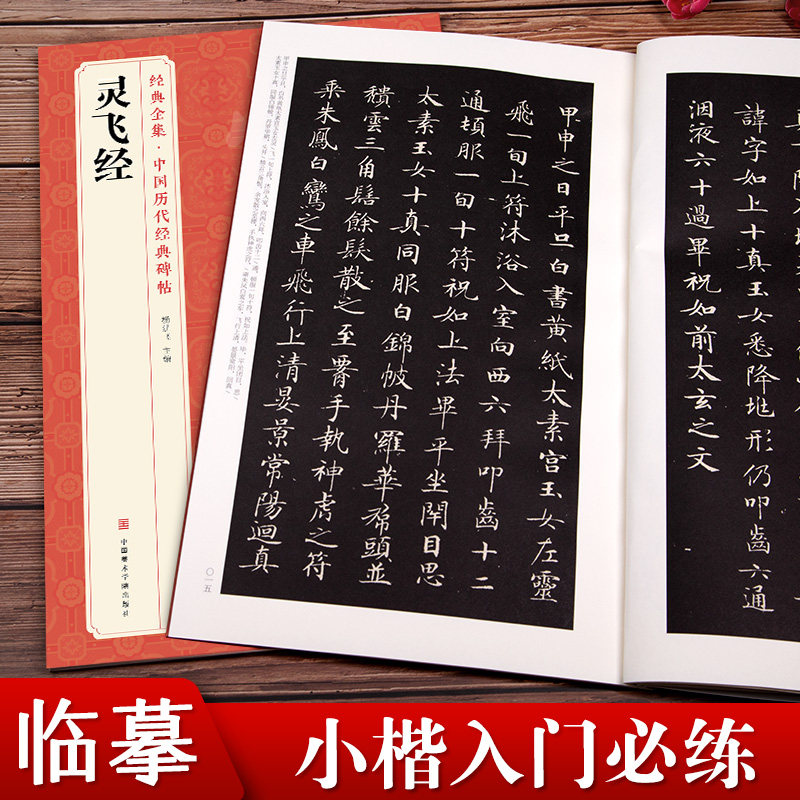 灵飞经
经典全集·中国历代经典碑帖
主编
中国美术学院出版社
甲申之日平旦白書黄紙太素宫玉女左靈
飛一旬上符沐浴入室向西六拜叩齒十二
通頓服一旬十符祝如上法畢平坐閉目思
太素玉女十真同服白錦帔丹羅華帬頭並
穨雲三角髻餘髮散之至署手執神虎之符
乘朱鳳白鸞之車飛行上清晏景常陽迴真
〇一五
諱字如上十真玉女悉降地形仍叩齒六通
咽液六十過畢祝如前太玄之文
临摹
小楷入门必练